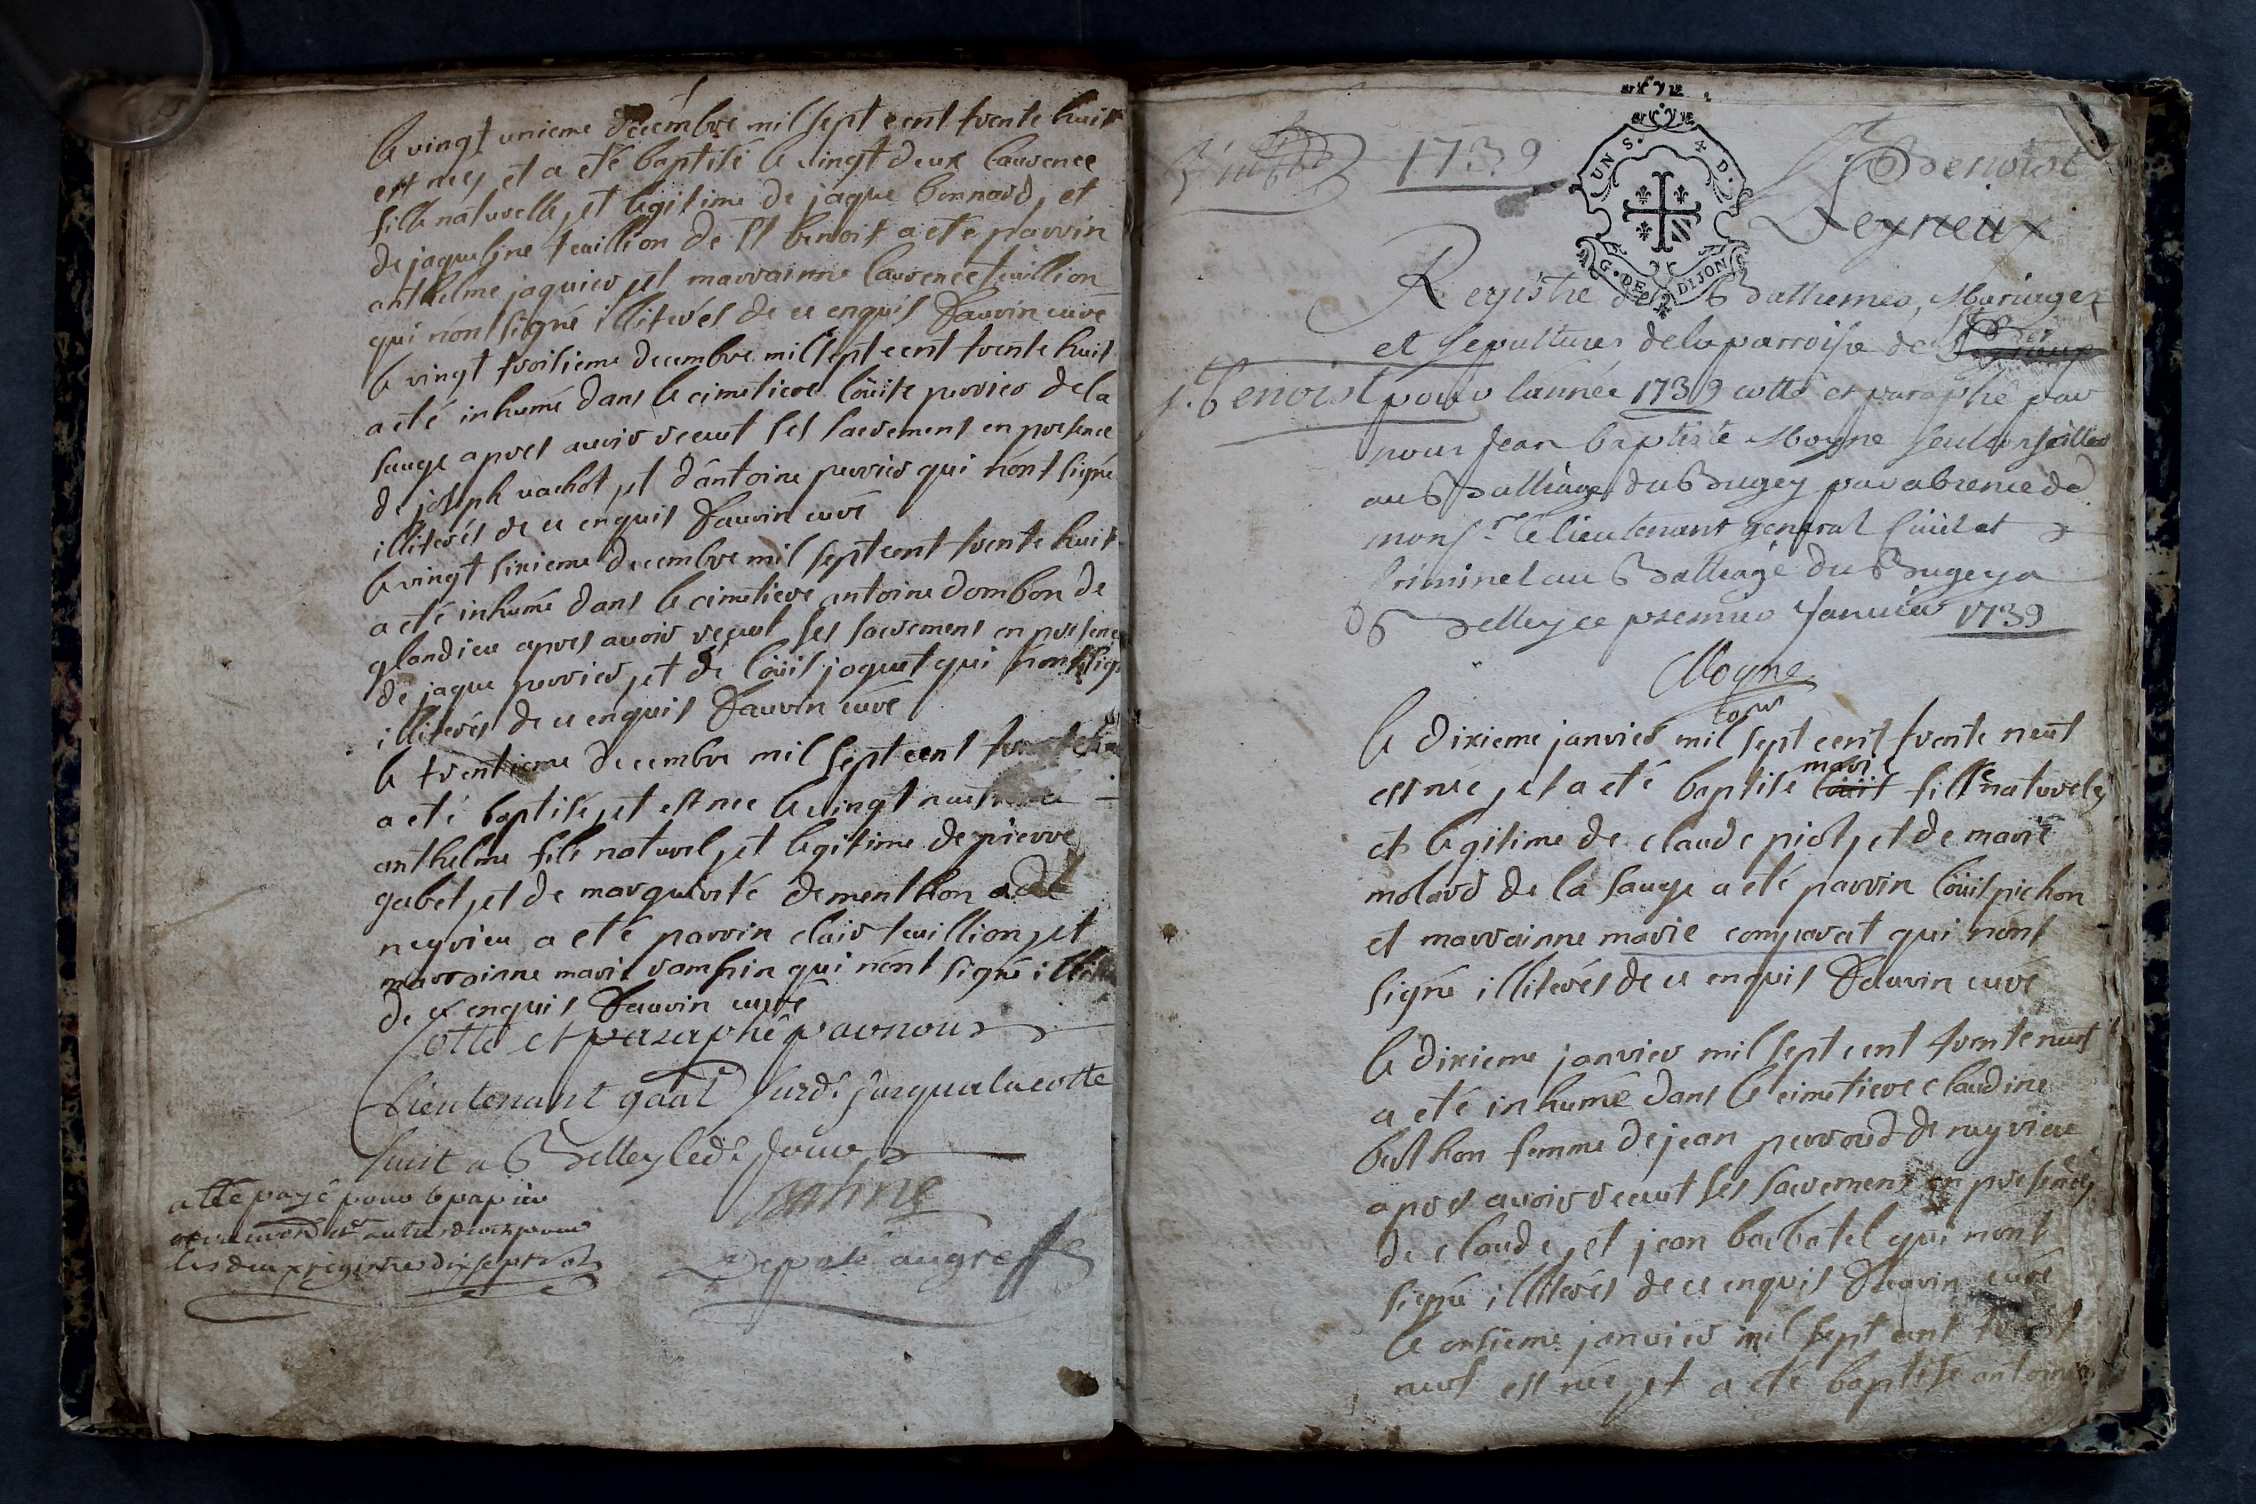 le vingt unieme decembre mil sept cent trente huit
est nee, et a eté baptisé le vingt deux laurence
fille naturelle, et legitime de jaque bonnard, et
de jaqueline teuillion de st benoit a eté parrin
anthelme joquier, et marrainne laurence teuillion
qui n'ont signé illiterés de ce enquis Fauvin curé
le vingt troisieme decembre mil sept cent trente huit
a eté inhumé dans le cimetiere loüise perrier de la
sauge apres avoir recut ses sacrements en presence
de joseph vachot, et d'antoine perrier qui n'ont signé
illiterés de ce enquis Fauvin curé
le vingt sixieme decembre mil sept cent trente huit
a eté inhumé dans le cimetiere antoine dombon de
glandieu apres avoir reçut ses sacrements en presence
de jaque perrier, et de loüis joquet qui n'ont sig
illiterés de ce enquis Fauvin curé
le trentieme decembre mil sept cent
a eté baptisé, et est nee le vingt neuf
anthelme fils naturel, et legitime de pierre
gubet, et de marguerite dementhon de
neyrieu a eté parrin clair teuillion, et
marrainne marie rampin qui n'ont signé
de ce enquis Fauvin curé
Cotté et paraphé par nous
Lieutenant gâal susd. jusqua la cotte
huit a Belley led. jour
a eté payé pour le papier
les deux registres dix sept sols
Deputé au greffe
1739
St Benoist
Peyrieux
UNS. 4 D.
G. DE DIJON
Registre des Bathemes, Mariages
et sepultures de la parroisse de
St. Benoist pour lannée 1739 cotté et paraphé par
nous Jean baptiste Moyne seul conseiller
au Balliage du Bugey par absence de
monsr. le lieutenant general Civil et
Criminel au Balliage du Bugey a
Belley ce premier Janvier 1739
Moyne
le dixieme janvier mil sept cent trente neuf
est née, et a eté baptisé marie loüis fille naturele
et legitime de claude piot, et de marie
molard de la sauge a eté parrin loüis pichon
et marrainne marie comparat qui n'ont
signé illiterés de ce enquis Fauvin curé
le dixieme janvier mil sept cent trente neuf
a eté inhumé dans le cimetiere claudine
berthon femme de jean perroud de neyrieu
apres avoir recut ses sacrements en presence
de claude, et jean barbatel qui n'ont
signé illiterés de ce enquis Fauvin curé
le onsieme janvier mil sept cent
neuf est née, et a eté baptisé